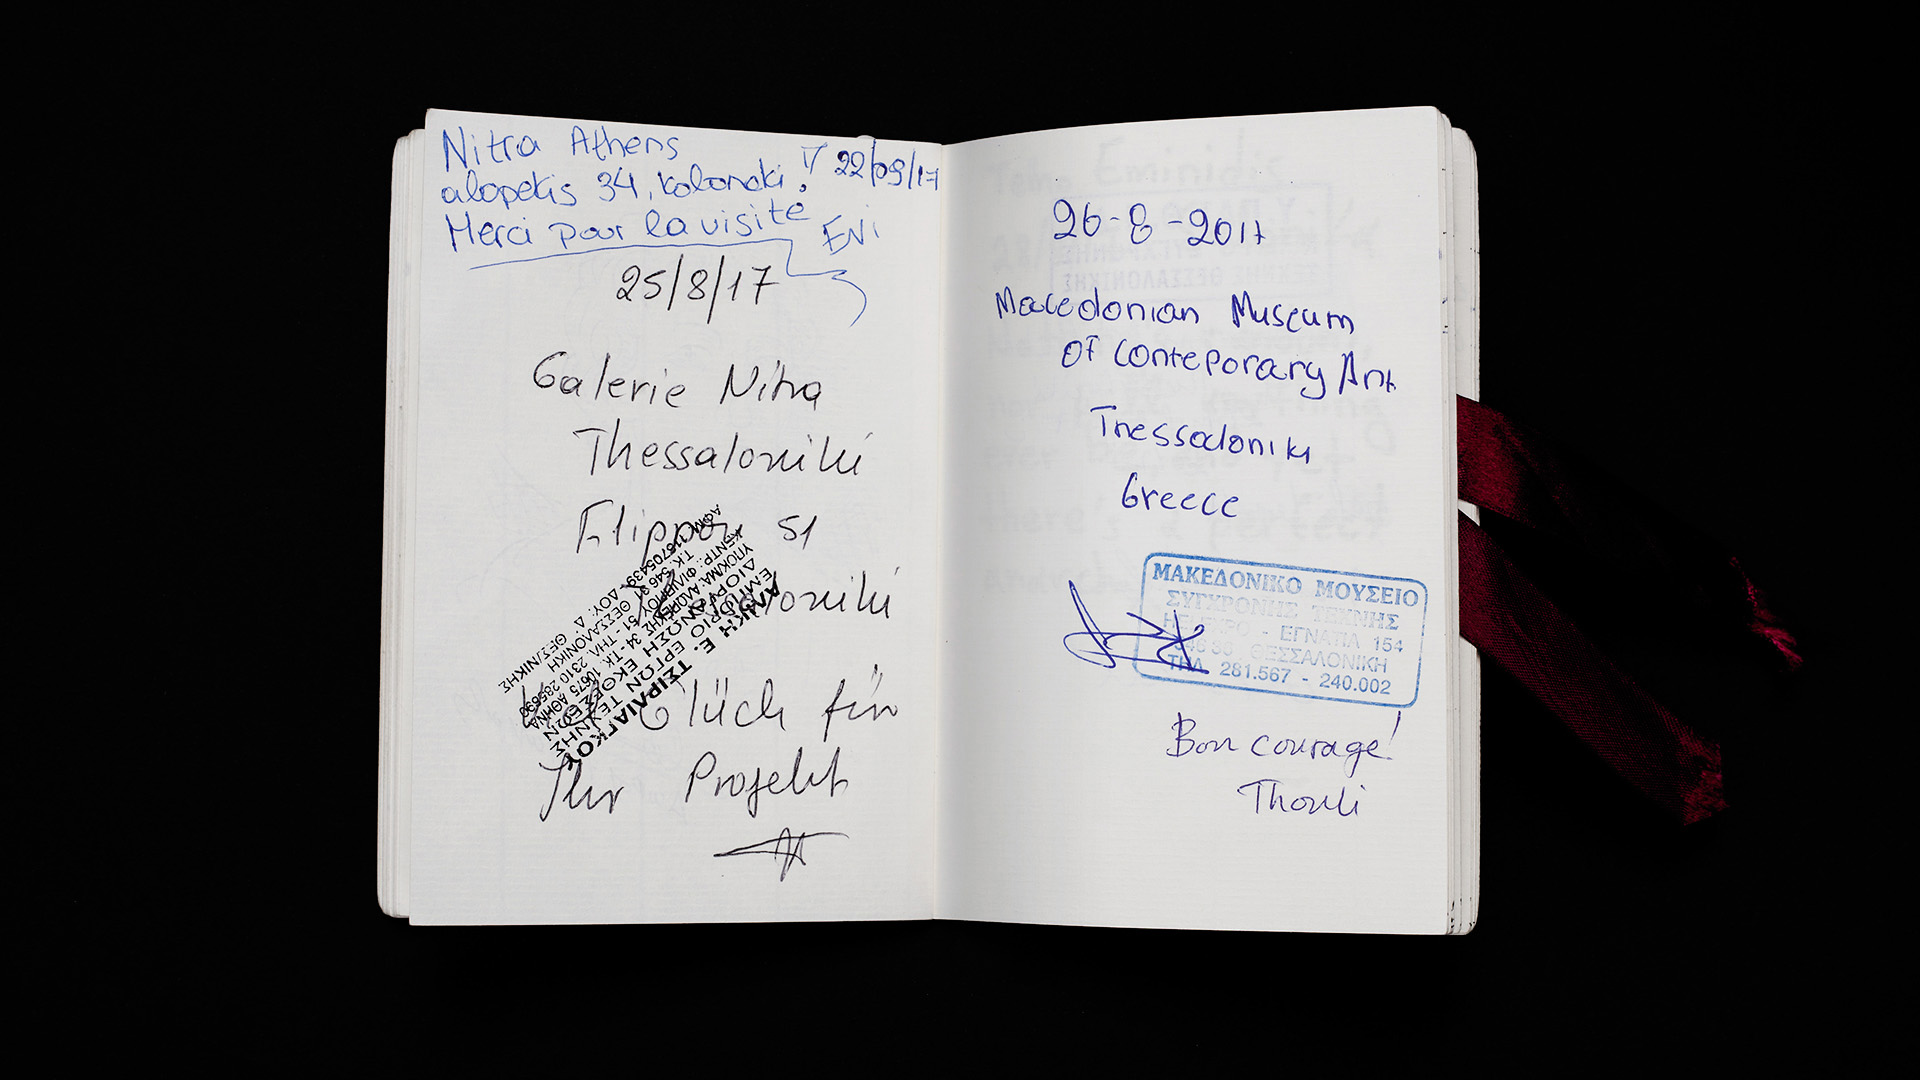 Nitra Athens
alopekis 34, Kolonaki! 22/09/17
Merci pour la visite
ENi
25/8/17
Galerie Nitra
Thessaloniki
Filippou 51
Glück für
Ihr Projekt
ΑΛΙΚΗ Ε. ΤΣΙΡΛΙΑΓΚΟΥ
ΕΜΠΟΡΙΟ ΕΡΓΩΝ ΤΕΧΝΗΣ
ΔΙΟΡΓΑΝΩΣΗ ΕΚΘΕΣΕΩΝ
ΥΠΟΚ/ΜΑ: ΑΛΩΠΕΚΗΣ 34 - Τ.Κ. 10675 ΑΘΗΝΑ
ΚΕΝΤΡ.: ΦΙΛΙΠΠΟΥ 51 - ΤΗΛ. 2310 285690
Τ.Κ. 54631 ΘΕΣΣΑΛΟΝΙΚΗ
ΑΦΜ: 115705439 ΔΟΥ: Δ' ΘΕΣ/ΝΙΚΗΣ
26-8-2017
Macedonian Museum
Of Conteporary Art
Thessaloniki
Greece
ΜΑΚΕΔΟΝΙΚΟ ΜΟΥΣΕΙΟ
ΣΥΓΧΡΟΝΗΣ ΤΕΧΝΗΣ
HELEXPO - ΕΓΝΑΤΙΑ 154
546 36 ΘΕΣΣΑΛΟΝΙΚΗ
ΤΗΛ. 281.567 - 240.002
Bon courage!
Thouli